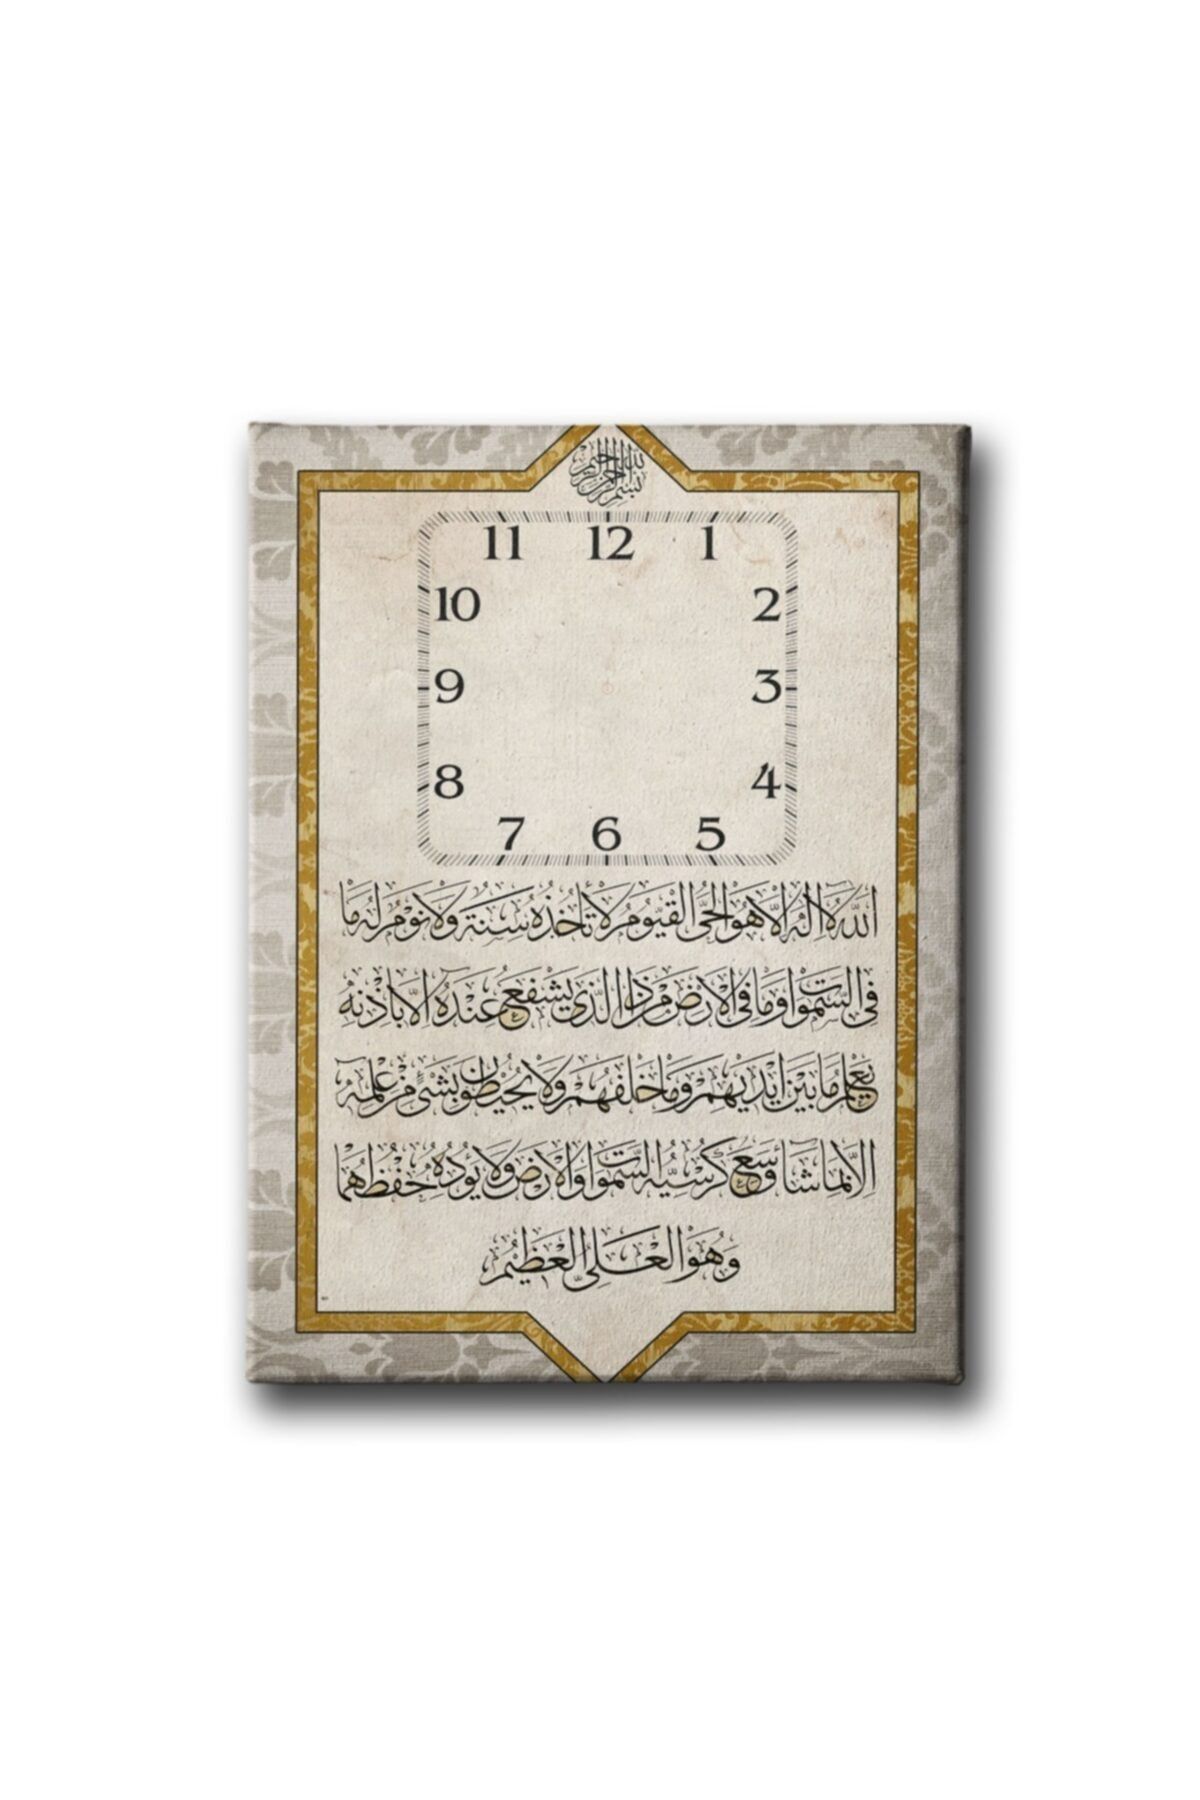 بسم الله الرحمن الرحيم
11 12 1
10 2
9 3
8 4
7 6 5
اَللّٰهُ لَٓا اِلٰهَ اِلَّا هُوَ الْحَيُّ الْقَيُّومُ لَا تَأْخُذُهُ سِنَةٌ وَلَا نَوْمٌ لَهُ مَا
فِي السَّمٰوَاتِ وَمَا فِي الْاَرْضِ مَنْ ذَا الَّذِي يَشْفَعُ عِنْدَهُٓ اِلَّا بِاِذْنِهِ
يَعْلَمُ مَا بَيْنَ اَيْدِيهِمْ وَمَا خَلْفَهُمْ وَلَا يُحِيطُونَ بِشَيْءٍ مِنْ عِلْمِهِٓ
اِلَّا بِمَا شَٓاءَ وَسِعَ كُرْسِيُّهُ السَّمٰوَاتِ وَالْاَرْضَ وَلَا يَؤُدُهُ حِفْظُهُمَا
وَهُوَ الْعَلِيُّ الْعَظِيمُ